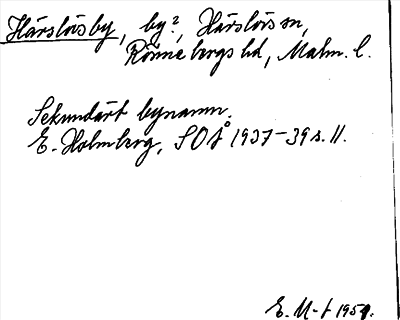 Härslövs by, by?, Härslövs sn,
Rönnebergs hd, Malm. l.
Sekundärt bynamn.
E. Holmberg, SOÅ 1937–39 s. 11.
E. M-t 1959.